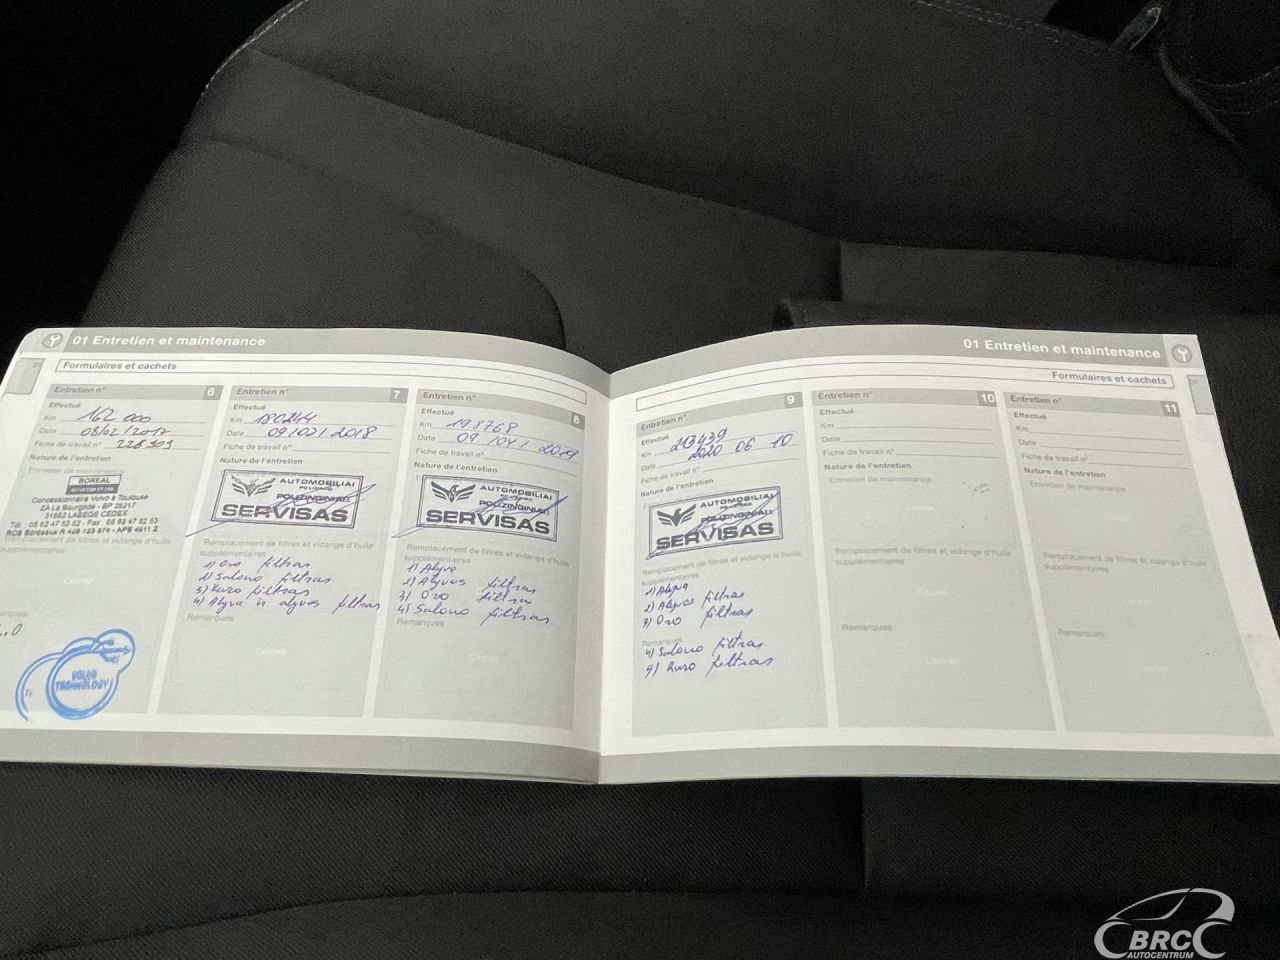 01 Entretien et maintenance
Formulaires et cachets
Entretien n° 6
Effectué
Km 162 000
Date 08/02/2017
Fiche de travail n°
Nature de l'entretien
Entretien de maintenance
BOREAL
Concessionnaire Volvo à Toulouse
ZA La Bourgade - BP 28217
31682 LABEGE CEDEX
Tél. 05 62 47 52 52 - Fax : 05 62 47 52 53
Remplacement de filtres et vidange d'huile
supplémentaires
Cachet
VOLVO
TECHNOLOGY
Entretien n° 7
Effectué
Km 180244
Date 09/02/2018
Fiche de travail n°
Nature de l'entretien
AUTOMOBILIAI
SERVISAS
Remplacement de filtres et vidange d'huile
supplémentaires
1) Oro filtras
2) Salono filtras
3) Kuro filtras
4) Alyva ir alyvos filtras
Remarques
Cachet
Entretien n° 8
Effectué
Km 198768
Date 09/04/2019
Fiche de travail n°
Nature de l'entretien
AUTOMOBILIAI
SERVISAS
Remplacement de filtres et vidange d'huile
supplémentaires
1) Alyva
2) Alyvos filtras
3) Oro filtras
4) Salono filtras
Remarques
Cachet
01 Entretien et maintenance
Formulaires et cachets
Entretien n° 9
Effectué
Km 213439
Date 2020 06 10
Fiche de travail n°
Nature de l'entretien
AUTOMOBILIAI
SERVISAS
Remplacement de filtres et vidange d'huile
supplémentaires
1) Alyva
2) Alyvos filtras
3) Oro filtras
Remarques
4) Salono filtras
5) Kuro filtras
Entretien n° 10
Effectué
Km
Date
Fiche de travail n°
Nature de l'entretien
Entretien de maintenance
Remplacement de filtres et vidange d'huile
supplémentaires
Cachet
Remarques
Cachet
Entretien n° 11
Effectué
Km
Date
Fiche de travail n°
Nature de l'entretien
Entretien de maintenance
Remplacement de filtres et vidange d'huile
supplémentaires
Remarques
BRC
AUTOCENTRUM